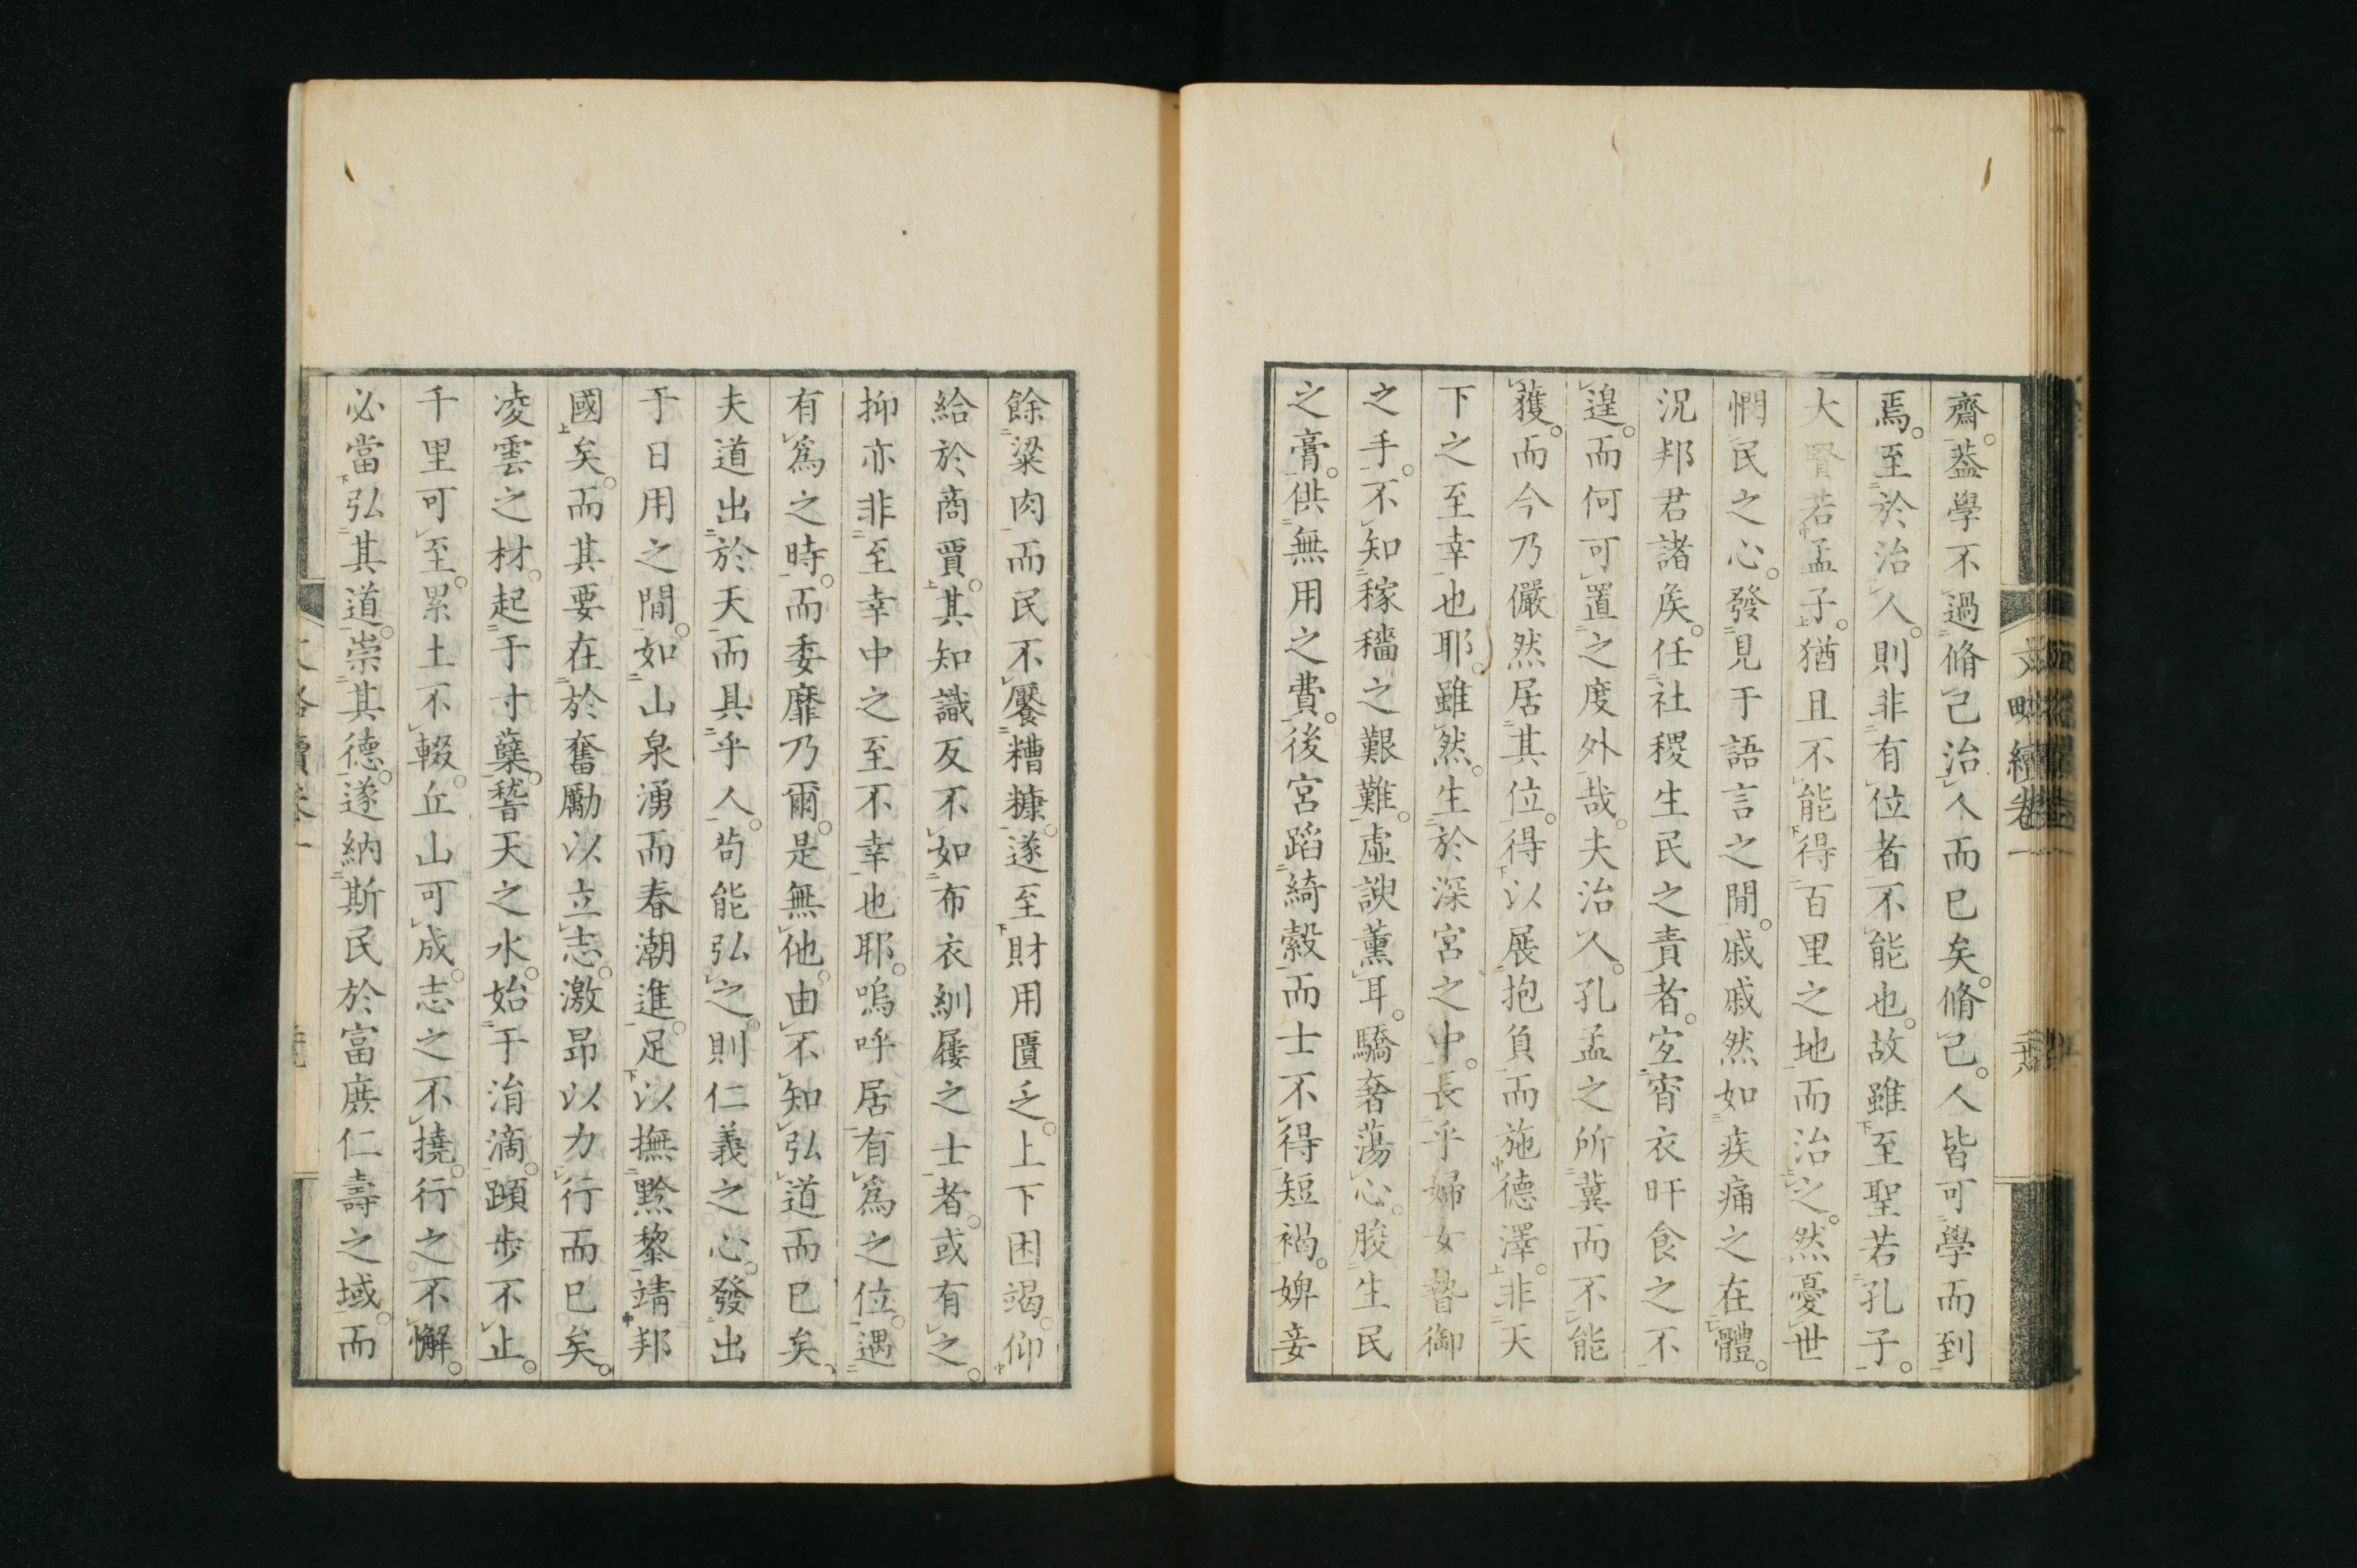 齊。葢學不過脩己治人而已矣。脩己。人皆可學而到
焉。至於治人。則非有位者不能也。故雖至聖若孔子。
大賢若孟子。猶且不能得百里之地而治之。然憂世
憫民之心。發見于語言之閒。戚戚然如疾痛之在體。
況邦君諸矦。任社稷生民之責者。宐宵衣旰食之不
遑。而何可置之度外哉。夫治人。孔孟之所冀而不能
獲。而今乃儼然居其位。得以展抱負而施德澤。非天
下之至幸也耶。雖然。生於深宮之中。長乎婦女暬御
之手。不知稼穡之艱難。虛諛薰耳。驕奢蕩心。朘生民
之膏。供無用之費。後宮蹈綺縠而士不得短褐。婢妾
餘粱肉而民不饜糟糠。遂至財用匱乏。上下困竭。仰
給於商賈。其知識反不如布衣紃屨之士者。或有之。
抑亦非至幸中之至不幸也耶。嗚呼居有爲之位。遇
有爲之時。而委靡乃爾。是無他。由不知弘道而已矣、
夫道出於天而具乎人。苟能弘之。則仁義之心。發出
于日用之閒。如山泉湧而春潮進。足以撫黔黎靖邦
國矣。而其要在於奮勵以立志。激昂以力行而已矣。
凌雲之材。起于寸蘖。稽天之水。始于涓滴。蹞步不止。
千里可至。累土不輟。丘山可成。志之不撓。行之不懈。
必當弘其道。崇其德。遂納斯民於富庶仁壽之域。而